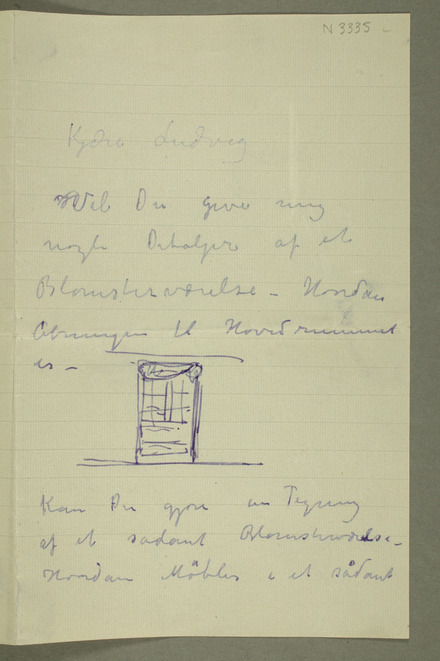 N 3335
Kjære Ludvig
Vil Du give mig
nogle Detaljer af et
Blomsterværelse – Hvordan
Åbningen til Hovedrummet
er –
Kan Du gjøre en Tegning
af et sadant Blomsterværelse –
Hvordan Møbler i et sådant